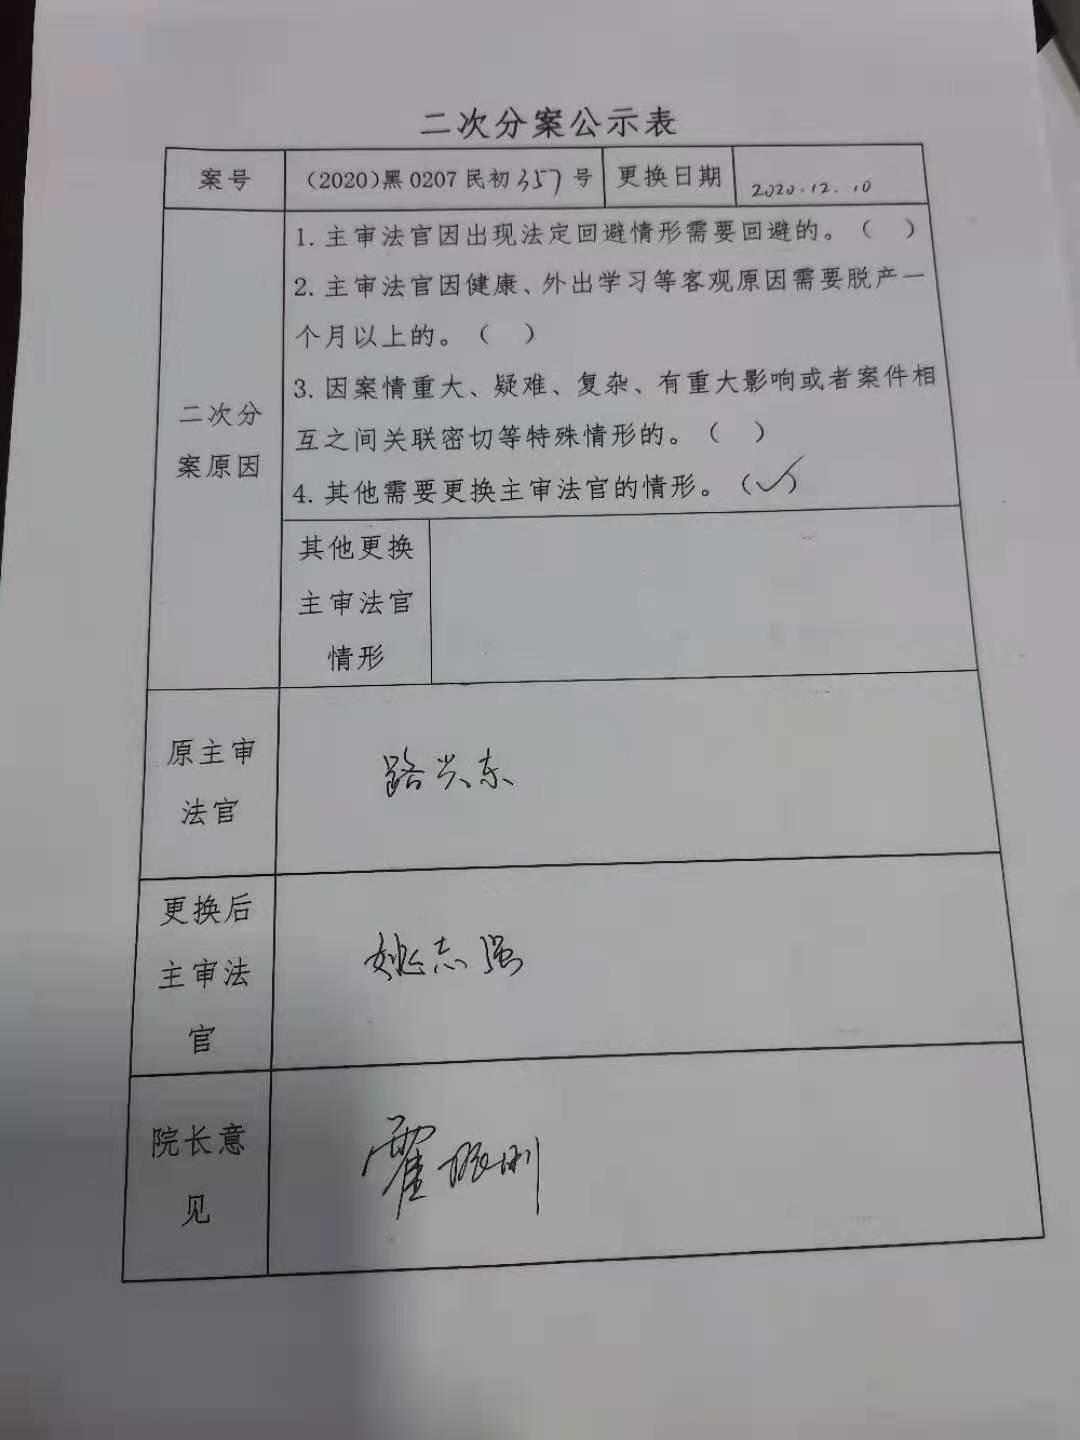 二次分案公示表
案号
(2020)黑0207民初357号
更换日期
2020.12.10
二次分
案原因
1.主审法官因出现法定回避情形需要回避的。( )
2.主审法官因健康、外出学习等客观原因需要脱产一
个月以上的。( )
3.因案情重大、疑难、复杂、有重大影响或者案件相
互之间关联密切等特殊情形的。( )
4.其他需要更换主审法官的情形。(✓)
其他更换
主审法官
情形
原主审
法官
路兴东
更换后
主审法
官
姚志强
院长意
见
霍振刚